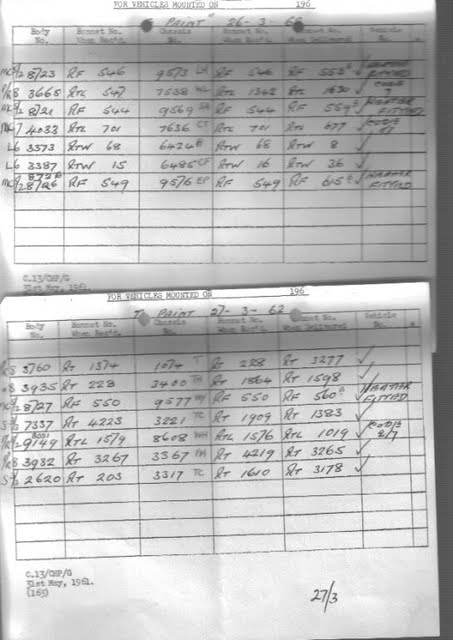 FOR VEHICLES MOUNTED ON 196
PAINT 26-3-62
Body No. Bonnet No. When Rec'd. Chassis No. Bonnet No. When Rec'd. Bonnet No. When Delivered Vehicle No.
8/23 RF 546 9573 RF 546 RF 553 ✓ HEATER FITTED
R/8 3665 RTL 547 7538 RTL 1343 RTL 1630 ✓ CODE 7
8/21 RF 544 9569 RF 544 RF 559 ✓ HEATER FITTED
4033 RTL 701 7636 CT RTL 701 RTL 677 ✓ CODE
L6 3373 RTW 68 6424 RTW 68 RTW 8 ✓
L6 3387 RTW 15 6485 CF RTW 16 RTW 36 ✓
28/26 RF 549 9576 EP RF 549 RF 615 ✓ HEATER FITTED
C.13/CHP/G
31st May, 1961.
FOR VEHICLES MOUNTED ON 196
PAINT 27-3-62
Body No. Bonnet No. When Rec'd. Chassis No. Bonnet No. When Rec'd. Bonnet No. When Delivered Vehicle No.
3760 RT 1374 1074 T RT 228 RT 3277 ✓
3935 RT 228 3400 RT 1864 RT 1598 ✓
8/27 RF 550 9577 RF 550 RF 560 ✓ HEATER FITTED
7337 RT 4223 3221 TC RT 1909 RT 1383 ✓
9149 RTL 1579 8608 RTL 1576 RTL 1019 ✓ CODE 2/7
R/8 3932 RT 3267 3367 RT 4219 RT 3265 ✓
2620 RT 203 3317 TC RT 1610 RT 3178 ✓
C.13/CHP/G
31st May, 1961.
(165)
27/3